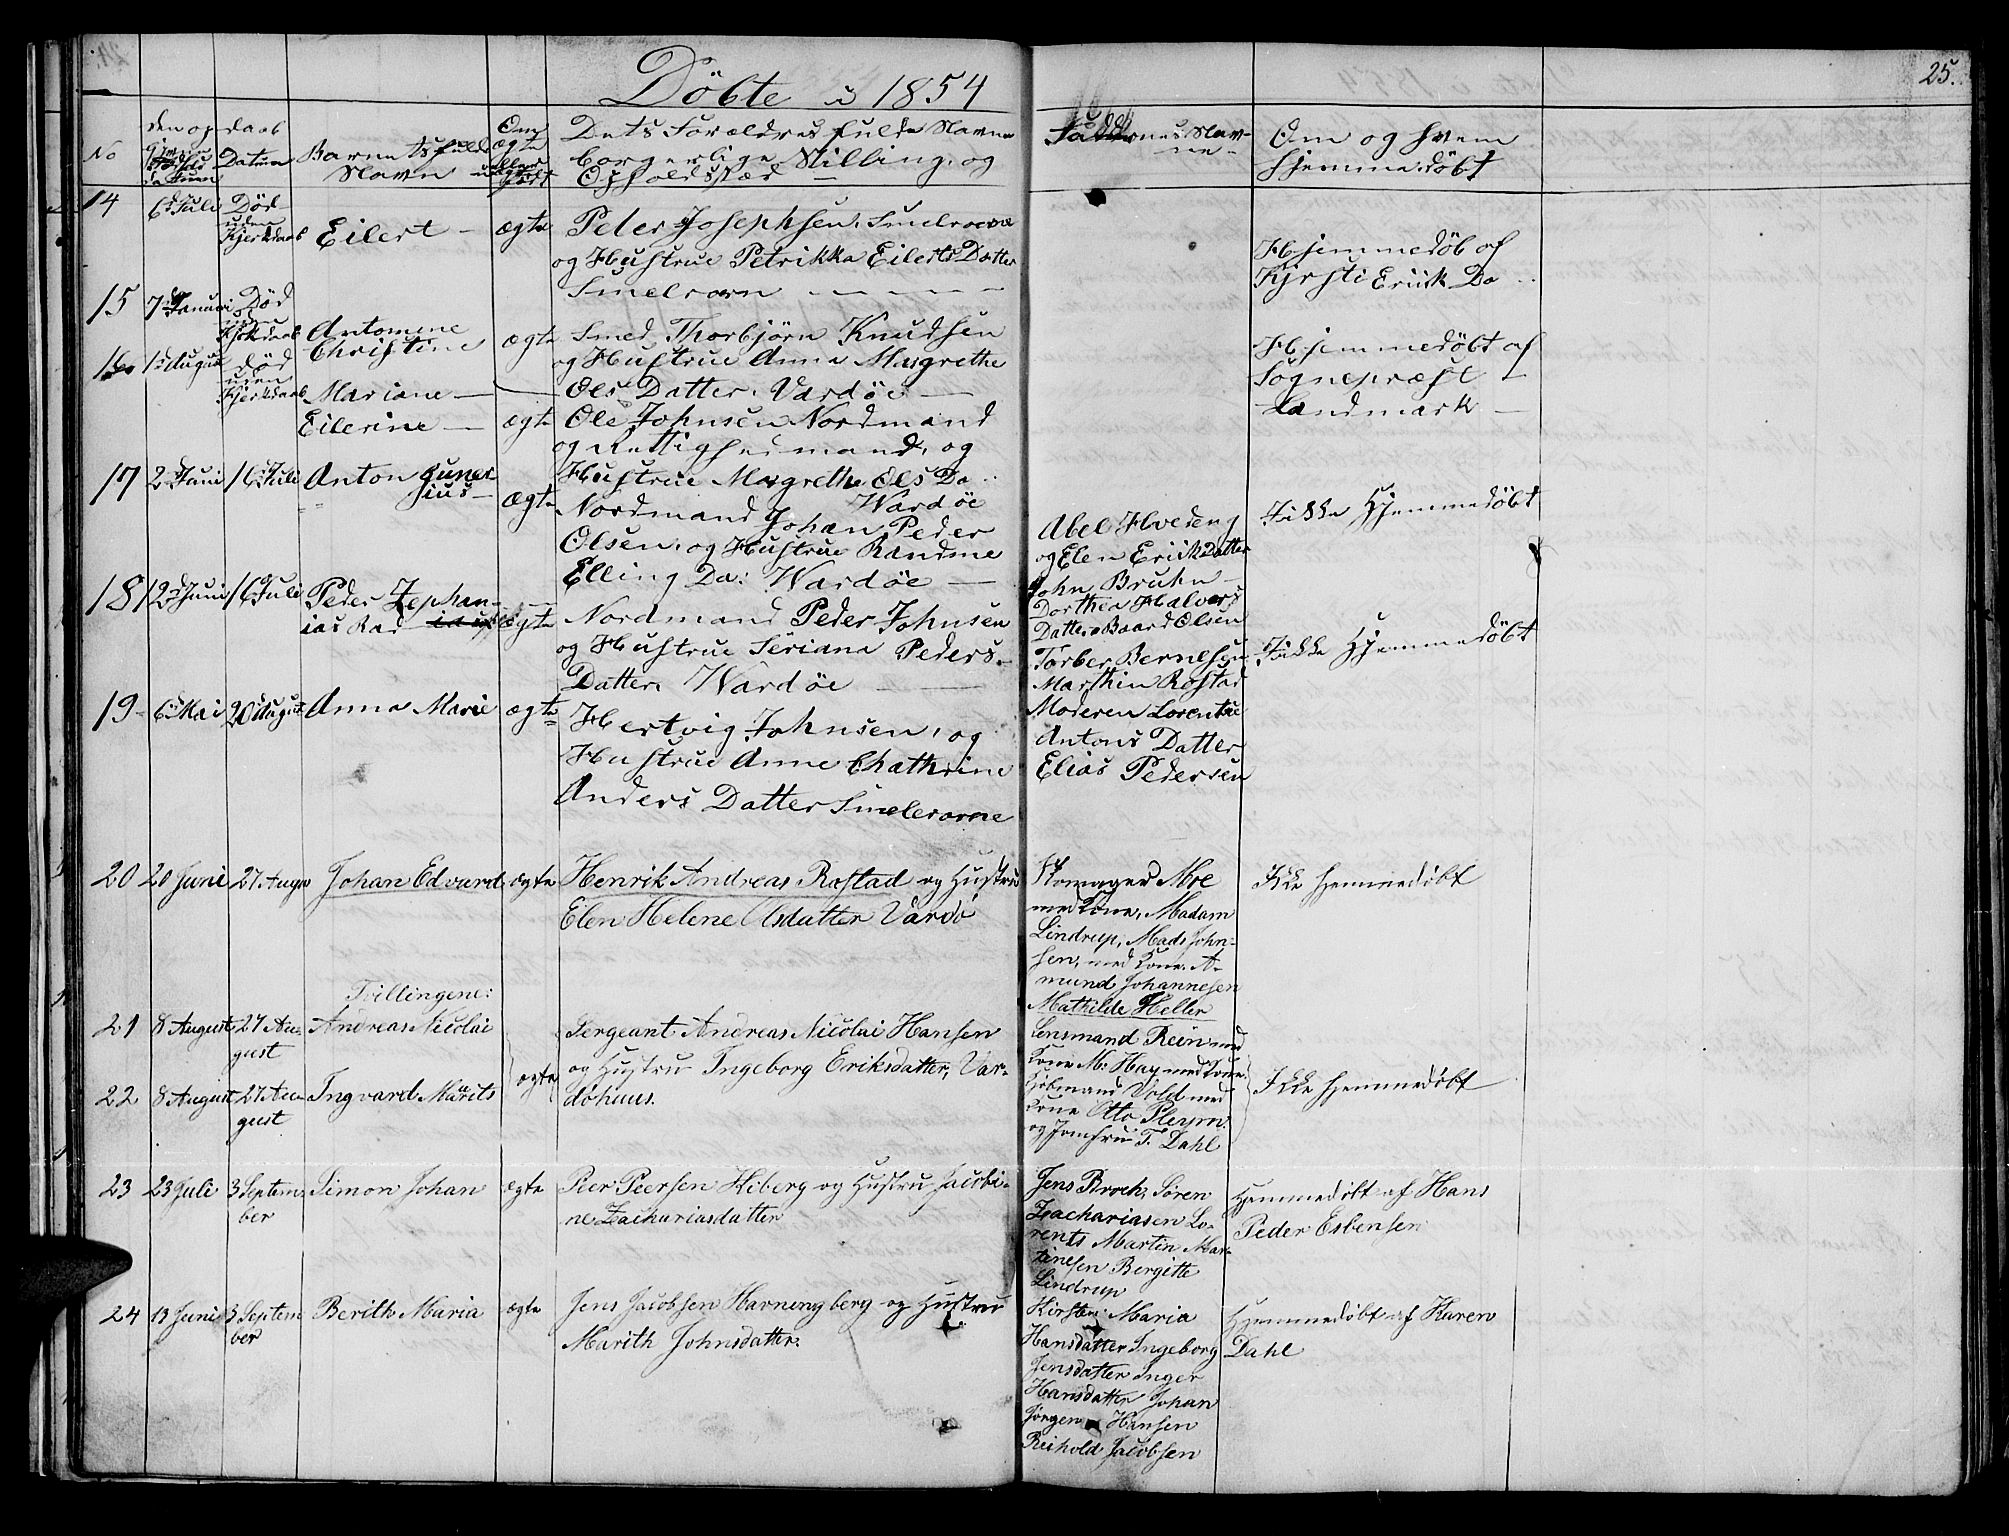 Döbte i 1854
25.
No
Datum
Barnets fulde
Navn
Om
ægte
eller
uægte
født
Dets Forældres fulde Navne
borgerlige Stilling, og
Opholdsstæd —
Faddernes Nav-
ne
Om og hvem
hjemmedöbt
14
6 Juli
Död
uden
Kjerkdaab
Eilert —
ægte
Peder Josephsen, Smelroerne
og Hustrue Petrikka Eilerts Datter
Smelrorn
Hjemmedöb af
Kjrsti Eriik Da
15
7 Januari
Död
uden
Kjerkdaab
Antomine
Christine
ægte
Smed Thorbjörn Knudsen
og Hustrue Anna Margrethe
Ols Datter, Vardöe —
Hjemmedöbt af
Sognepræst —
Landmark —
16
1 August
död
uden
Kjerkdaab
Mariane —
Eilerine —
ægte
Ole Johnsen Nordmand
og Rettighedmand, og
Hustrue Margrethe Ols Da
Wardöe
17
2 Juni
16 Juli
Anton Guner-
ius —
ægte
Nordmand Johan Peder
Olsen, og Hustrue Randine
Elling Da: Wardöe —
Abel Hvedeng
og Elen Eriksdatter
John Bruhn —
Dorthea Halvors
Datter, Baard Olsen
Ikke Hjemmedöbt
18
12 Juni
16 Juli
Peder Zephan-
ias Rad
ægte
Nordmand Peder Johnsen
og Hustrue Seriana Peders-
Datter, Wardöe
Torber Bernesen
Marthin Rostad
Moderen Lorentse
Antons Datter
Elias Pedersen
Ikke Hjemmedöbt
19
6 Mai
20 August
Anna Marie
ægte
Hertvig Johnsen, og
Hustrue Anne Chathrine
Anders Datter Smelerorne
20
20 Juni
27 Augus
Johan Edvard
ægte
Henrik Andreas Rostad og Hustru
Elen Helene Olsdatter Vardö
Skomager Moe
med Kone, Madam
Lindrup, Mads John-
sen, med Kone, A-
mund Johannesen
Mathilde Heller
Ikke hjemmedöbt
Tvillingene:
21
8 August
27 Au-
gust
Andreas Nicolai
Sergeant Andreas Nicolai Hansen
og Hustru Ingeborg Eriksdatter, Var-
döhuus.
ægte
Lensmand Rein med
Kone M: Hay med Kone
Kjöbmand Vold med
Kone Otto Pleym
og Jomfru T. Dahl
Ikke hjemmedöbt
22
8 August
27 Au-
gust
Ingvard Mürits
23
23 Juli
3 Septem-
ber
Simon Johan
ægte
Peer Peersen Kiberg og Hustru Jacobi-
ne Zachariasdatter
Jens Broch, Sören
Zachariasen Lo-
rents Martin Mar-
tinesen Bergitte
Lindrup
Hjemmedöbt af Hans
Peder Esbensen
24
13 Juni
3 Septem
ber
Berith Maria
ægte
Jens Jacobsen Havningberg og Hustru
Marith Johnsdatter.
Kirsten Maria
Hansdatter Ingeborg
Jensdatter Inger
Hansdatter Johan
Jörgen Hansen
Reihold Jacobsen
Hjemmedöbt af Karen
Dahl